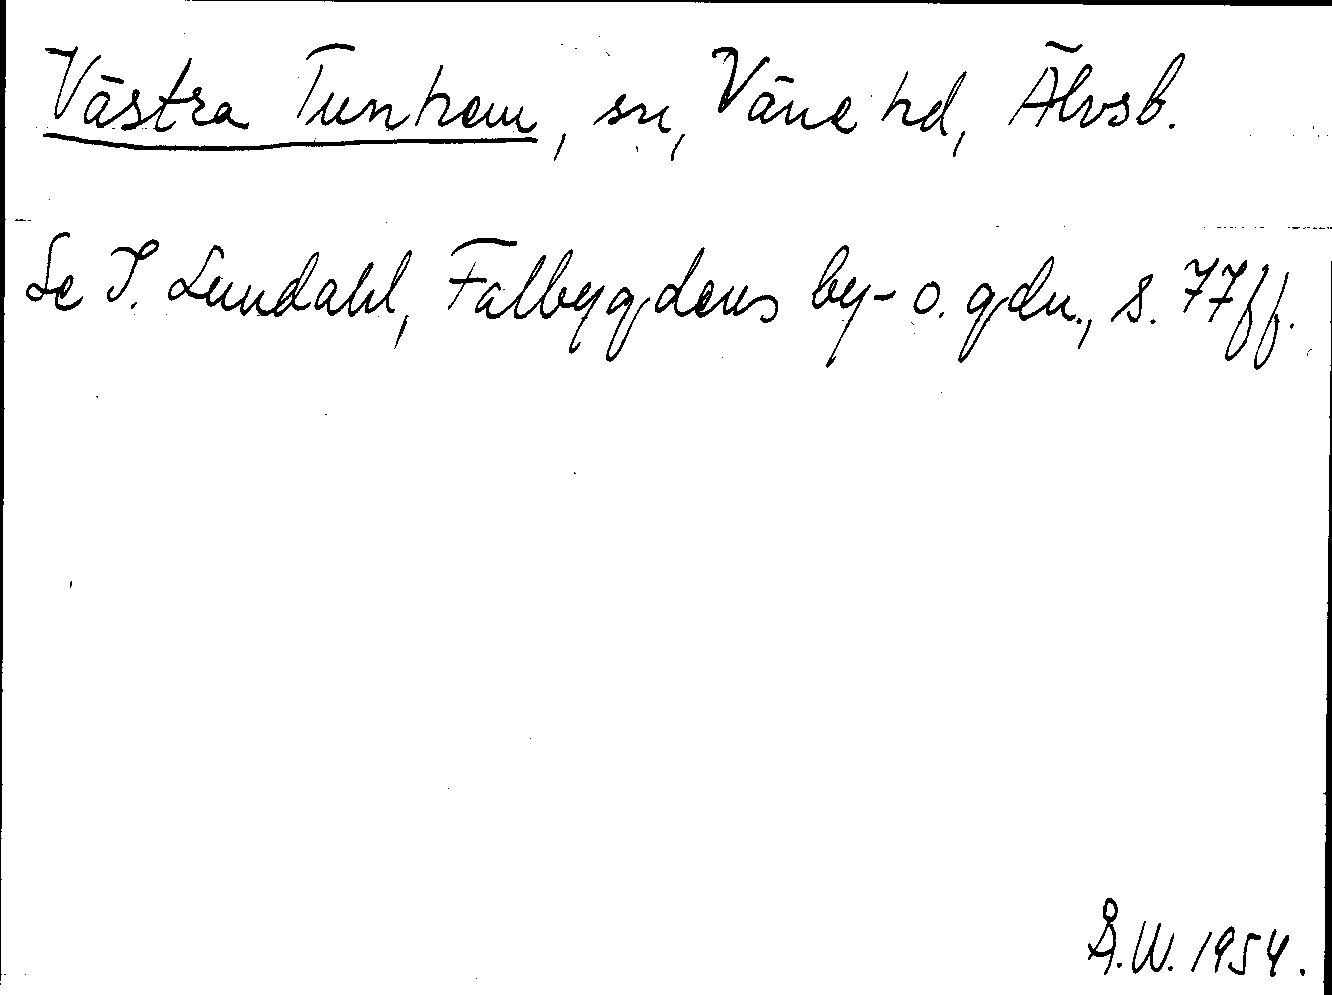 Västra Tunhem, sn, Väne hd, Älvsb.
Se I. Lundahl, Falbygdens by- o. gdn., s. 77ff.
Å.W. 1954.